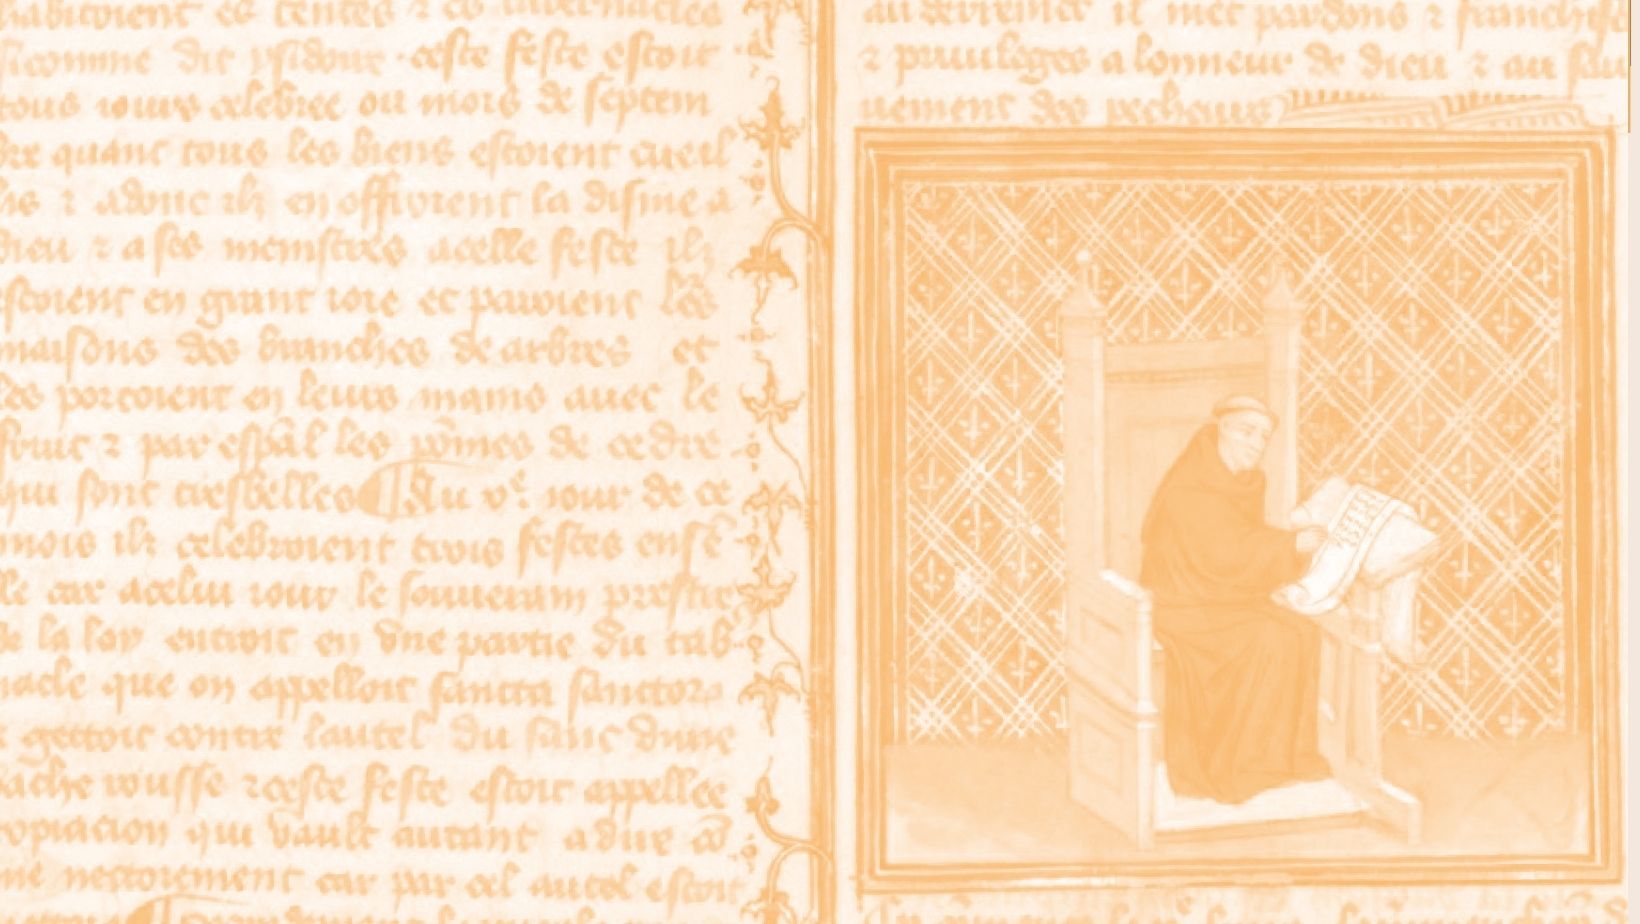 habitoient es tentes ⁊ es tabernacles
sicomme dit ysidore ceste feste estoit
tous iours celebree ou mois de septem
bre quant tous les biens estoient cueil
lis ⁊ adonc ilz en offroient la disme a
dieu ⁊ a ses menistres a celle feste ilz
estoient en grant ioie et paroient les
maisons des branches de arbres et
les portoient en leurs mains avec le
fruit ⁊ par espãl les põmes de cedre
qui sont tresbelles Au vᵉ iour de ce
mois ilz celebroient trois festes ensẽ
ble car a celui iour le souuerain prestre
de la loy entroit en vne partie du tab
nacle que on appelloit sancta sanctorũ
⁊ gettoit contre lautel du sanc dune
vache rousse ⁊ ceste feste estoit appellee
propiacion qui vault autant a dire cõ
me nestoiement car par cel autel estoit
au derrenier il met pardons ⁊ franchises
⁊ priuileges a lonneur de dieu ⁊ au sau
uement des pecheurs